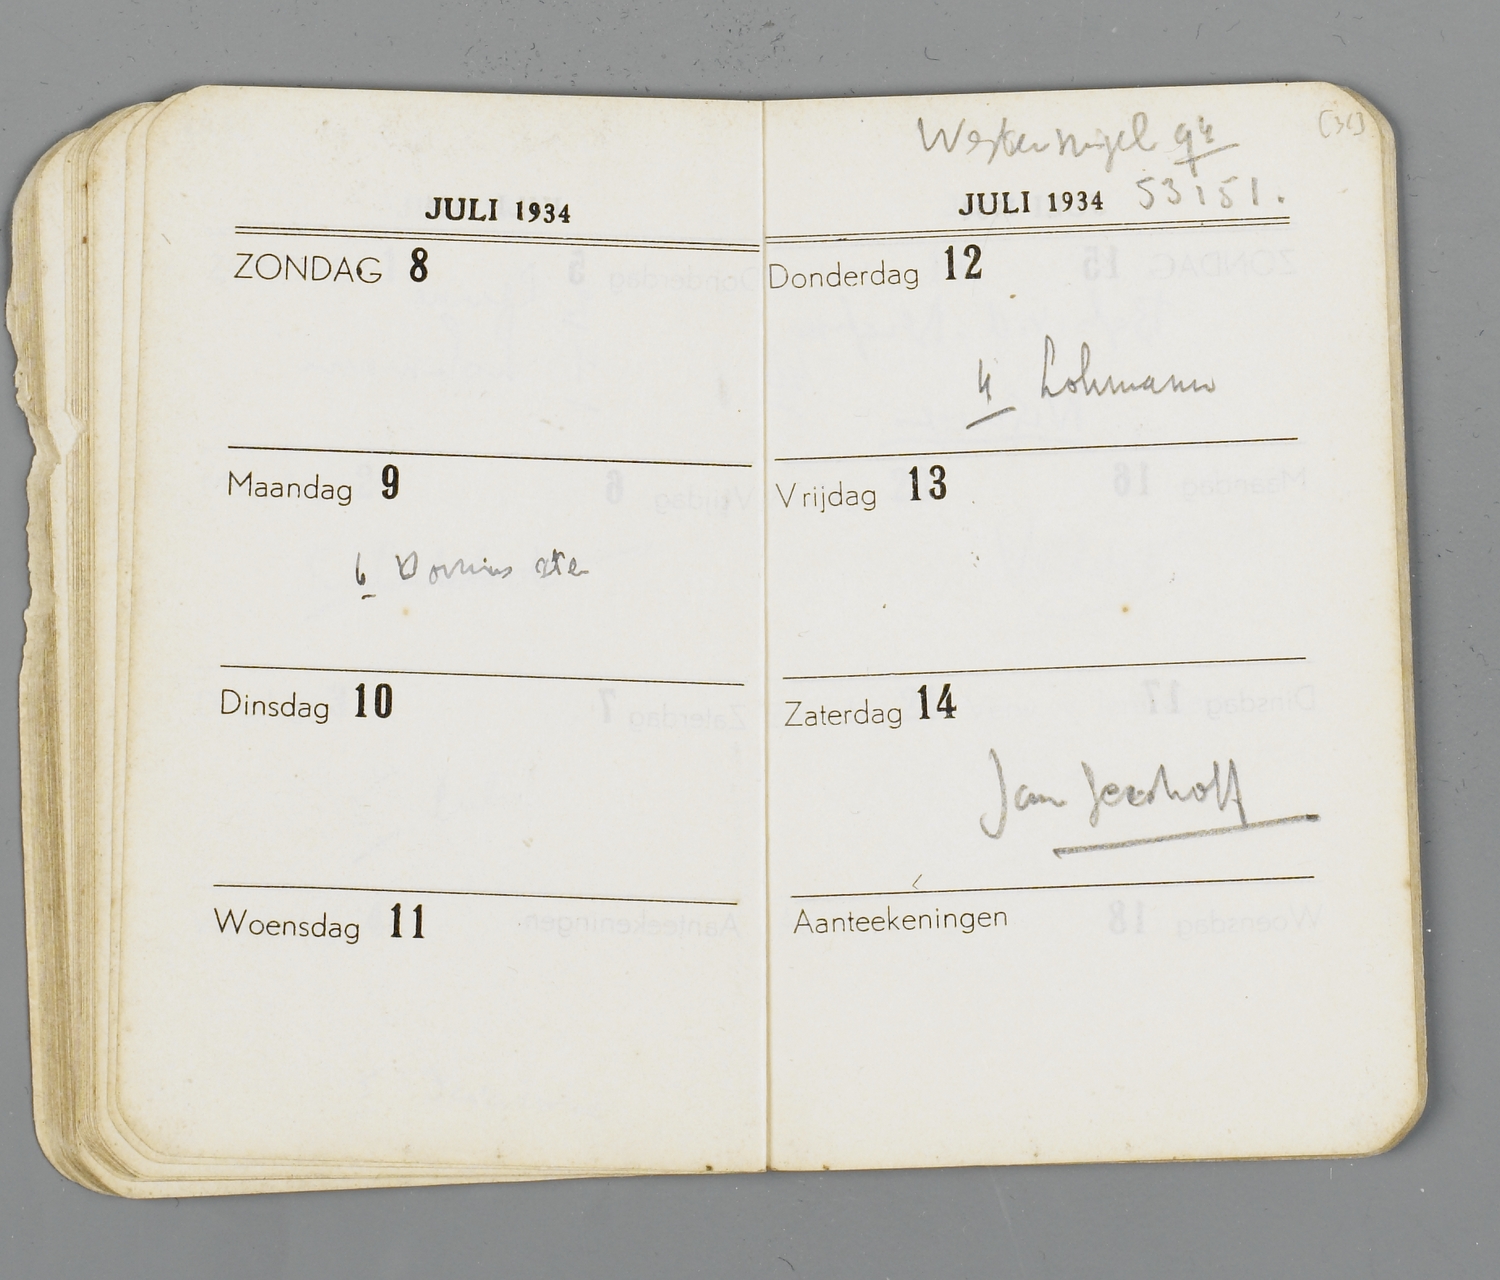 JULI 1934
ZONDAG 8
Maandag 9
6
Dinsdag 10
Woensdag 11
94
JULI 1934 53151.
Donderdag 12
4 Lohmann
Vrijdag 13
Zaterdag 14
Jan
Aanteekeningen